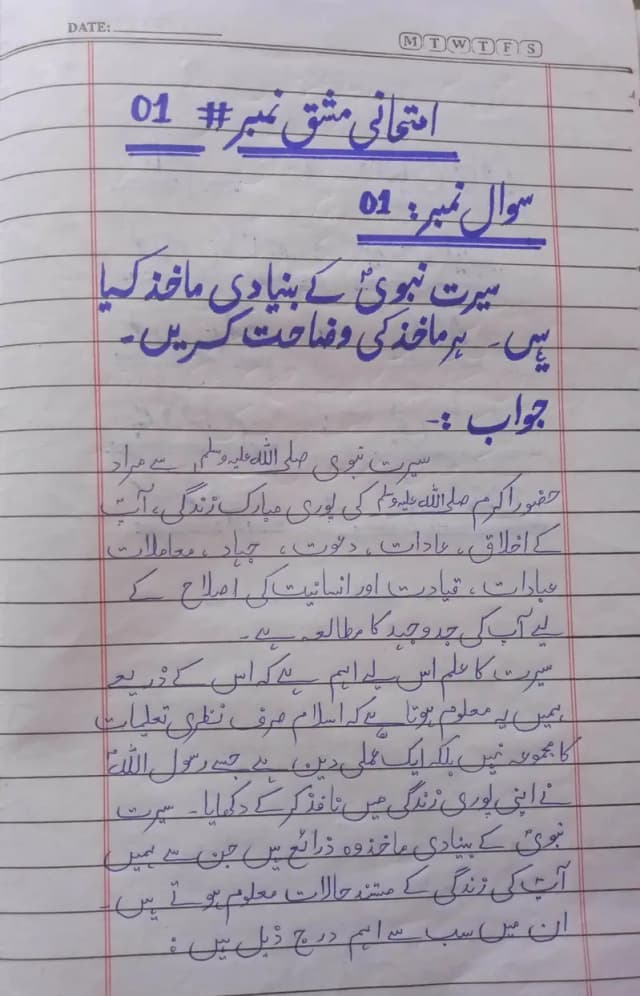 DATE:
M T W T F S
امتحانی مشق نمبر # 01
سوال نمبر: 01
سیرت نبویؐ کے بنیادی ماخذ کیا
ہیں۔ ہر ماخذ کی وضاحت کریں۔
جواب :-
سیرت نبوی صلی اللہ علیہ وسلم سے مراد
حضور اکرم صلی اللہ علیہ وسلم کی پوری مبارک زندگی، آپؐ
کے اخلاق، عادات، دعوت، جہاد، معاملات
عبادات، قیادت اور انسانیت کی اصلاح کے
لیے آپ کی جدوجہد کا مطالعہ ہے۔
سیرت کا علم اس لیے اہم ہے کہ اس کے ذریعے
ہمیں یہ معلوم ہوتا ہے کہ اسلام صرف نظری تعلیمات
کا مجموعہ نہیں بلکہ ایک عملی دین ہے جسے رسول اللہؐ
نے اپنی پوری زندگی میں نافذ کر کے دکھایا۔ سیرت
نبویؐ کے بنیادی ماخذ وہ ذرائع ہیں جن سے ہمیں
آپؐ کی زندگی کے مستند حالات معلوم ہوتے ہیں۔
ان میں سب سے اہم درج ذیل ہیں :